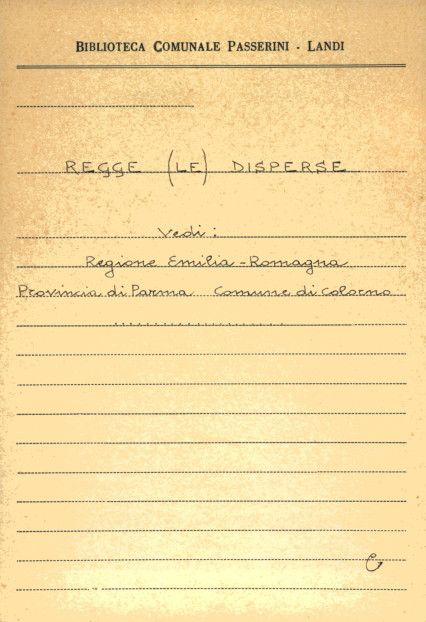 BIBLIOTECA COMUNALE PASSERINI - LANDI
REGGE (LE) DISPERSE
Vedi:
Regione Emilia-Romagna
Provincia di Parma Comune di Colorno
......................